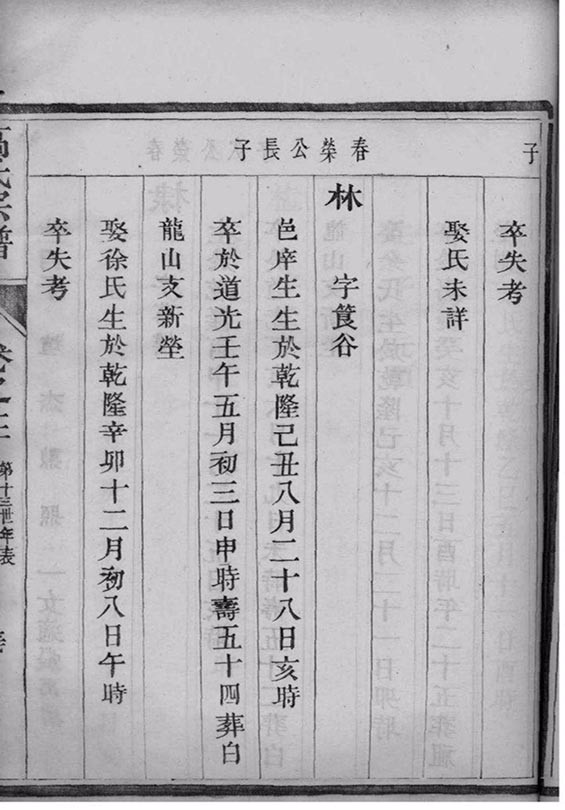 子
卒失考
娶氏未詳
春榮公長子
林 字篔谷
邑庠生生於乾隆己丑八月二十八日亥時
卒於道光壬午五月初三日申時壽五十四葬白
龍山支新塋
娶徐氏生於乾隆辛卯十二月初八日午時
卒失考
氏宗譜
卷之
第十三世年表